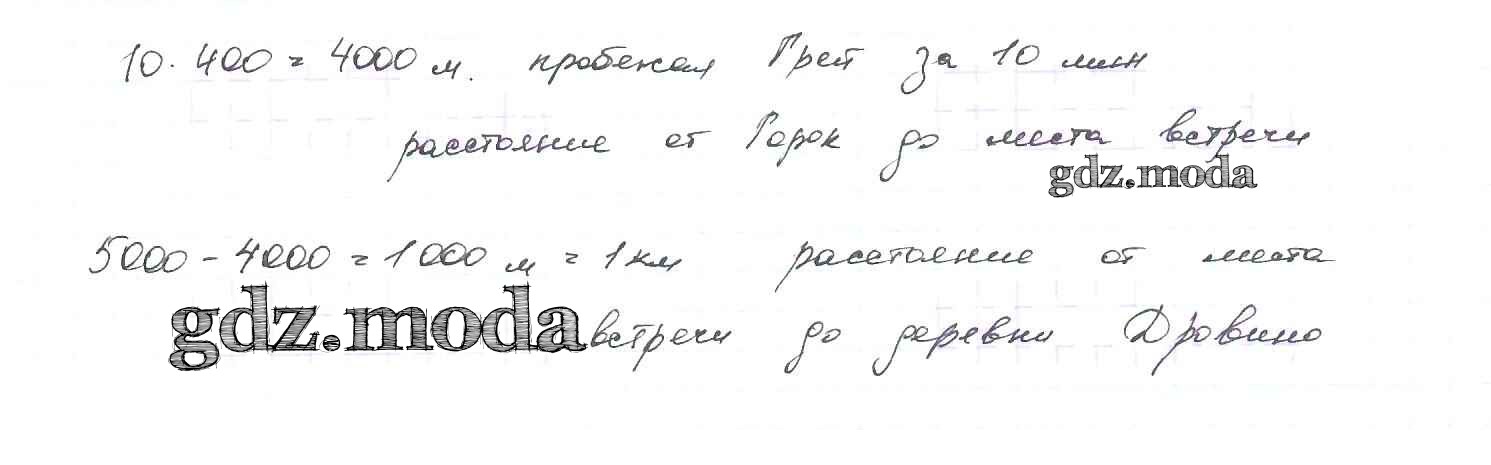 10 · 400 = 4000 м. пробежал Грей за 10 мин
расстояние от Горок до места встречи
gdz.moda
5000 - 4000 = 1000 м = 1 км расстояние от места
gdz.moda встречи до деревни Дровино